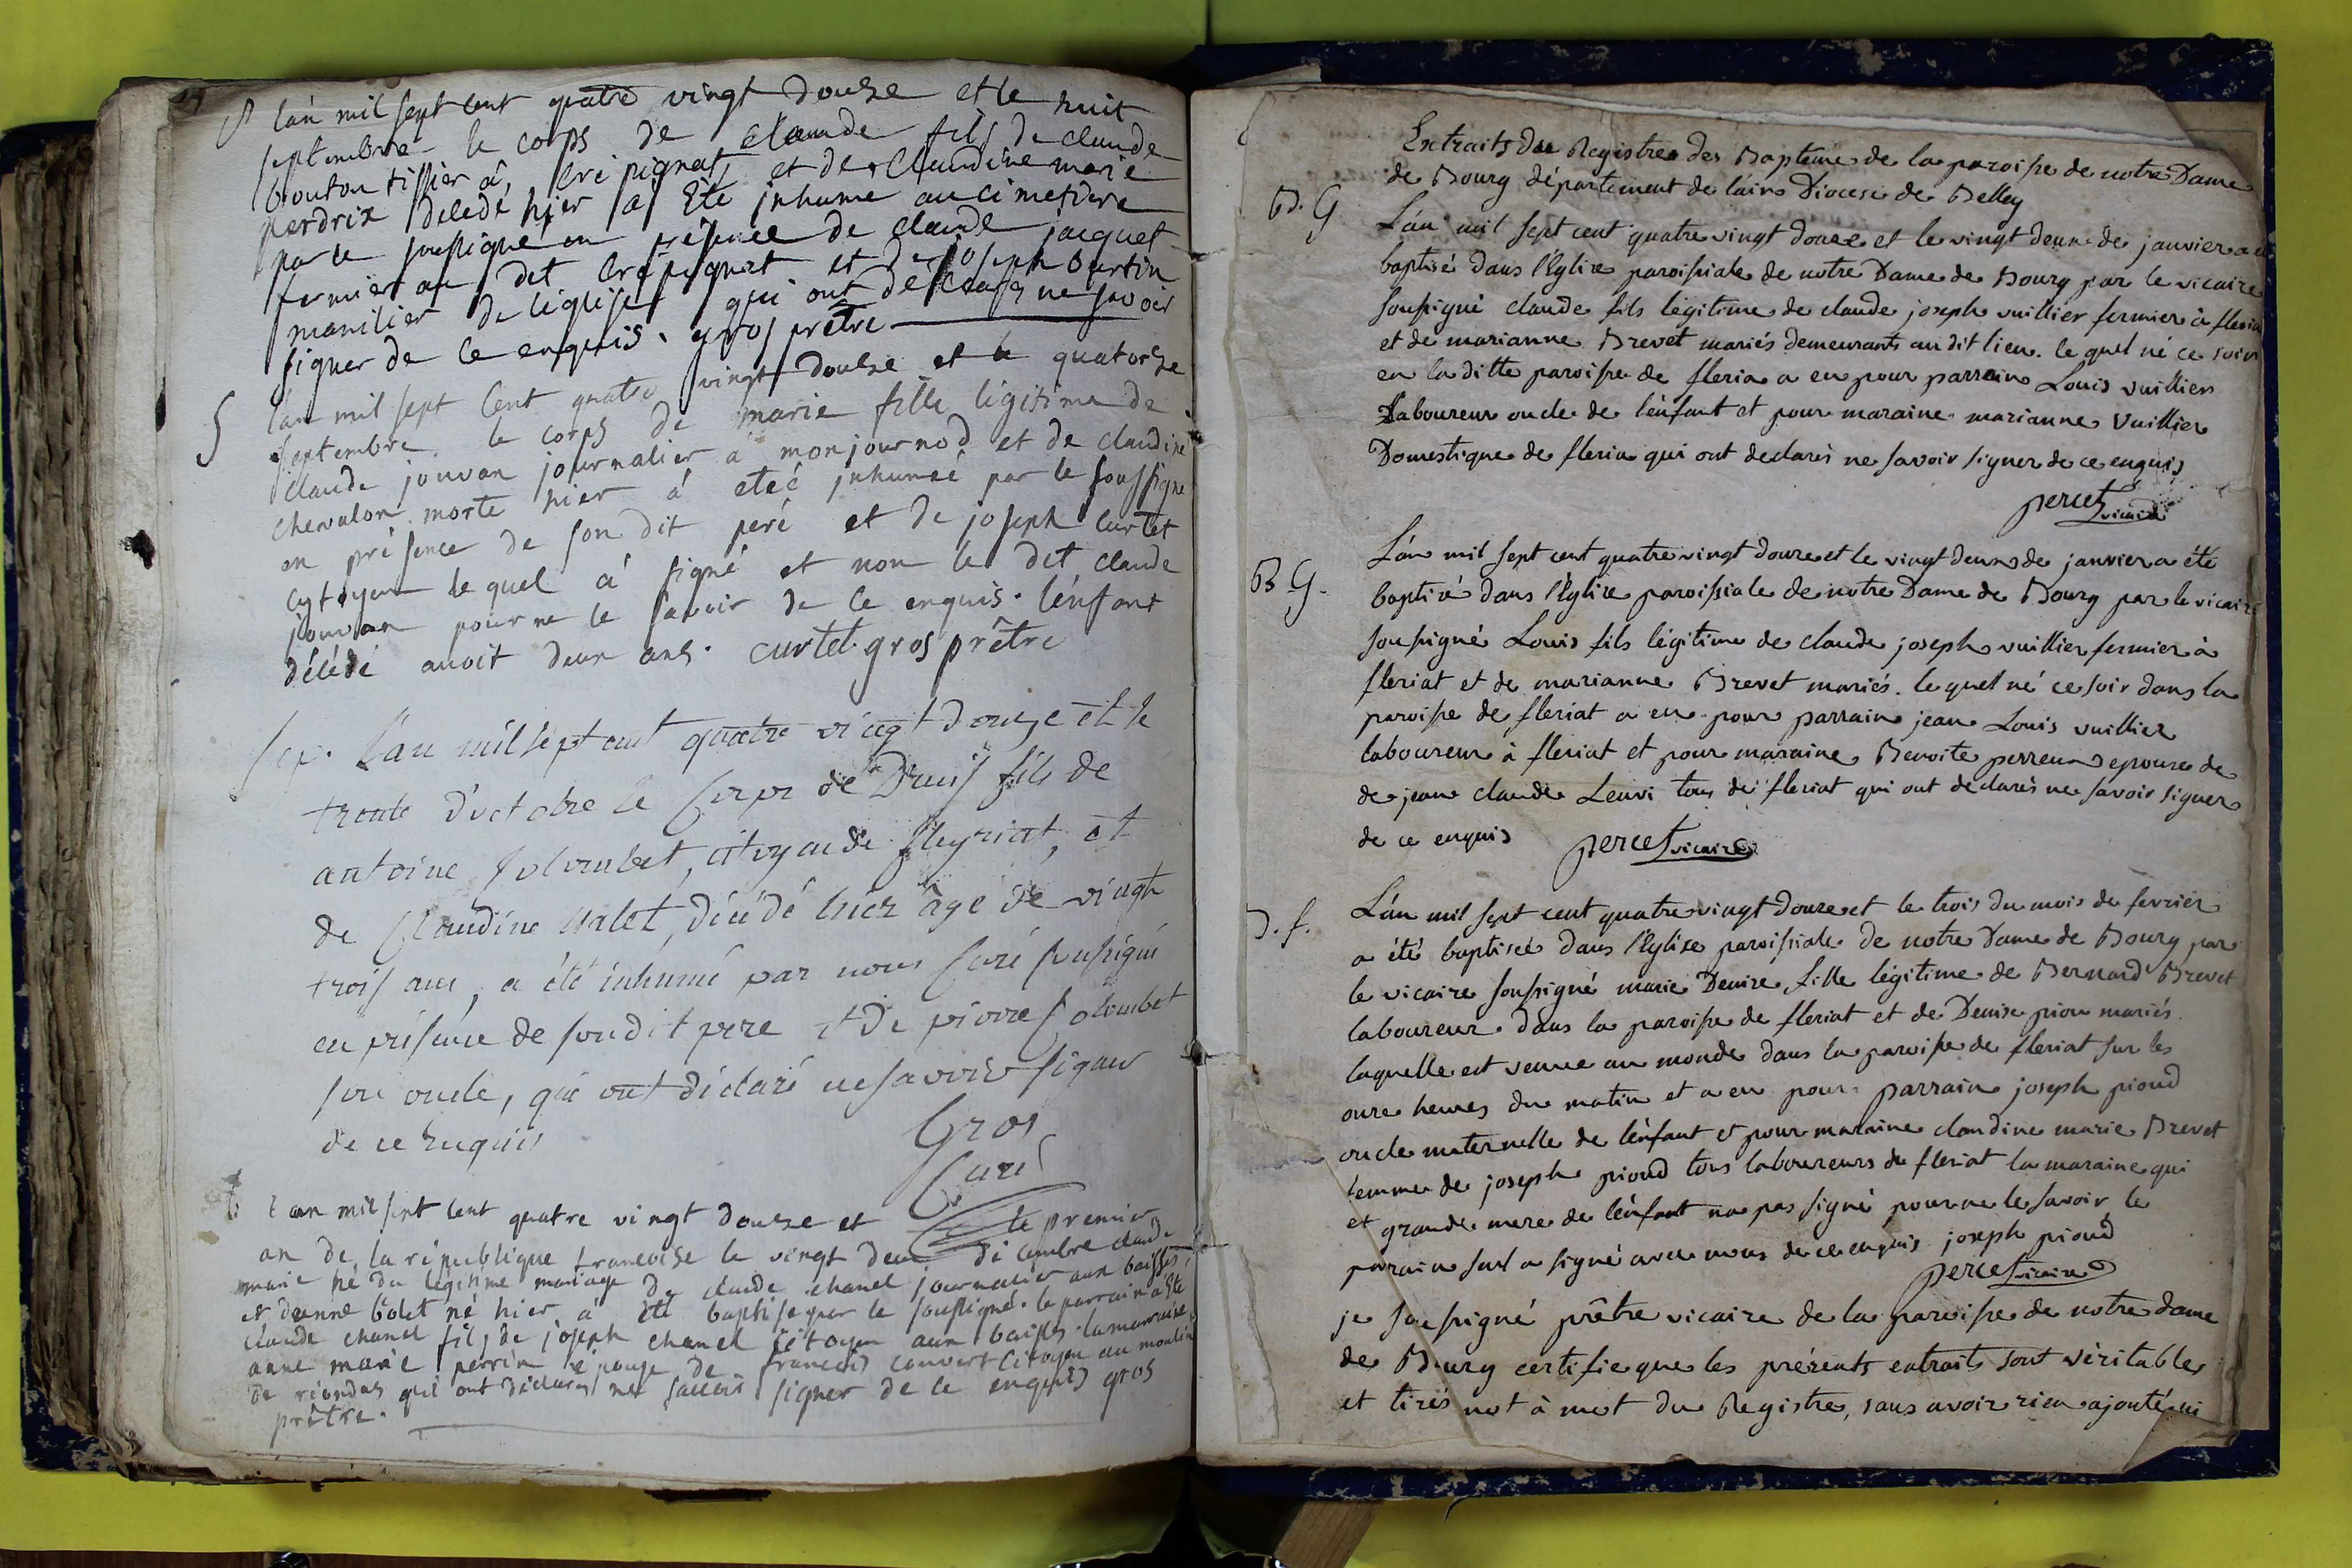 S l'an mil sept cent quatre vingt doulse et le huit
septembre le corps de claude fils de claude
bouton tissier à crépignat et de claudine marie
perdrix décédé hier a été inhumé au cimetiere
par le soussigné en présence de claude jacquet
fermier au dit crépignat et de joseph burtin
manilier de léglise qui ont déclarés ne savoir
signer de ce enquis. gros prêtre
S l'an mil sept cent quatre vingt doulse et le quatorse
septembre le corps de marie fille légitime de
claude jouvan journalier a monjournod et de claudine
chevalon morte hier á eteé inhumée par le soussigné
en présence de son dit peré et de joseph curtet
cytoyen le quel á signé et non le dit claude
jouvan pour ne le savoir de ce enquis. lénfant
décédé avoit deux ans. curtet. gros prêtre
Sep. L'an mil sept cent quatre vingt douze et le
trente d'octobre le Corps de Denis fils de
antoine Colombet, citoyen de fleyriat, et
de Claudine Malet, décédé hier âgé de vingt
trois ans, a été inhumé par nous Curé soussigné
en présence de son dit pere et de pierre Colombet
son oncle, qui ont déclaré ne savoir signer
de ce Enquis Gros
Curé
l'an mil sept cent quatre vingt doulse et le premier
an de la république francoise le vingt deux dicembre claude
marie né du légitime mariage de claude chanel journalier aux baisses
et danne bolet né hier á été baptise par le soussigné. le parrain a été
claude chanel fils de joseph chanel citoyen aux baisses la marraine
anne marie perrin épouse de francois convert citoyen au moulin
de riondas qui ont déclarés ne savoir signer de ce enquis gros
prêtre.
Extraits des Registres des Baptême de la paroisse de notre Dame
de Bourg département de láin Diocese de Belley
B. G L'án mil sept cent quatre vingt douze et le vingt deux de janvier a été
baptisé dans l'Eglise paroissiale de notre Dame de Bourg par le vicaire
soussigné claude fils légitime de claude joseph vuillier fermier à fleria
et de marianne Brevet mariés demeurants au dit lieu. le quel né ce soir
en la ditte paroisse de fleria a eu pour parrain Louis vuillier
Laboureur oncle de lénfant et pour maraine marianne Vuillier
Domestique de fleria qui ont declarés ne savoir signer de ce enquis
percet vicaire
B G. L'án mil sept cent quatre vingt douze et le vingt deux de janvier a été
baptisé dans l'Eglise paroissiale de notre Dame de Bourg par le vicaire
soussigné Louis fils légitime de claude joseph vuillier fermier à
fleriat et de marianne Brevet mariés. le quel né ce soir dans la
paroisse de fleriat a eu pour parrain jean Louis vuillier
laboureur à fleriat et pour maraine Benoite perreux epouse de
de jean claude Leuvi tous de fleriat qui ont déclarés ne savoir signer
de ce enquis percet vicaire
B. f. L'án mil sept cent quatre vingt douze et le trois du mois de fevrier
a été baptiseé dans l'Eglise paroissiale de notre Dame de Bourg par
le vicaire soussigné marie Denise fille légitime de Bernard Brevet
laboureur dans la paroisse de fleriat et de Denise pion mariés.
laquelle est venue au monde dans la paroisse de fleriat sur les
onze heures du matin et a eu pour parrain joseph pioud
oncle maternelle de lénfant et pour maraine claudine marie Brevet
femme de joseph pioud tous laboureurs de fleriat la maraine qui
et grande mere de lénfant na pas signé pour ne le savoir, le
parain seul a signé avec nous de ce enquis joseph pioud
percet vicaire
je soussigné prêtre vicaire de la paroisse de notre dame
de Bourg certifie que les présents extraits sont véritables
et tirés mot à mot du Registre, sans avoir rien ajouté ni